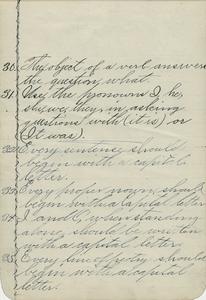 30. The object of a verb answers
the question, what.
31. Use the pronouns I, he,
she, we, they, in asking
questions with (it is) or
(It was).
32. Every sentence should
begin with a capital
letter.
33. Every proper noun, should
begin with a capital letter
34. I and O, when standing
alone, should be written
with a capital letter.
35. Every line of poetry should
begin with a capital
letter.